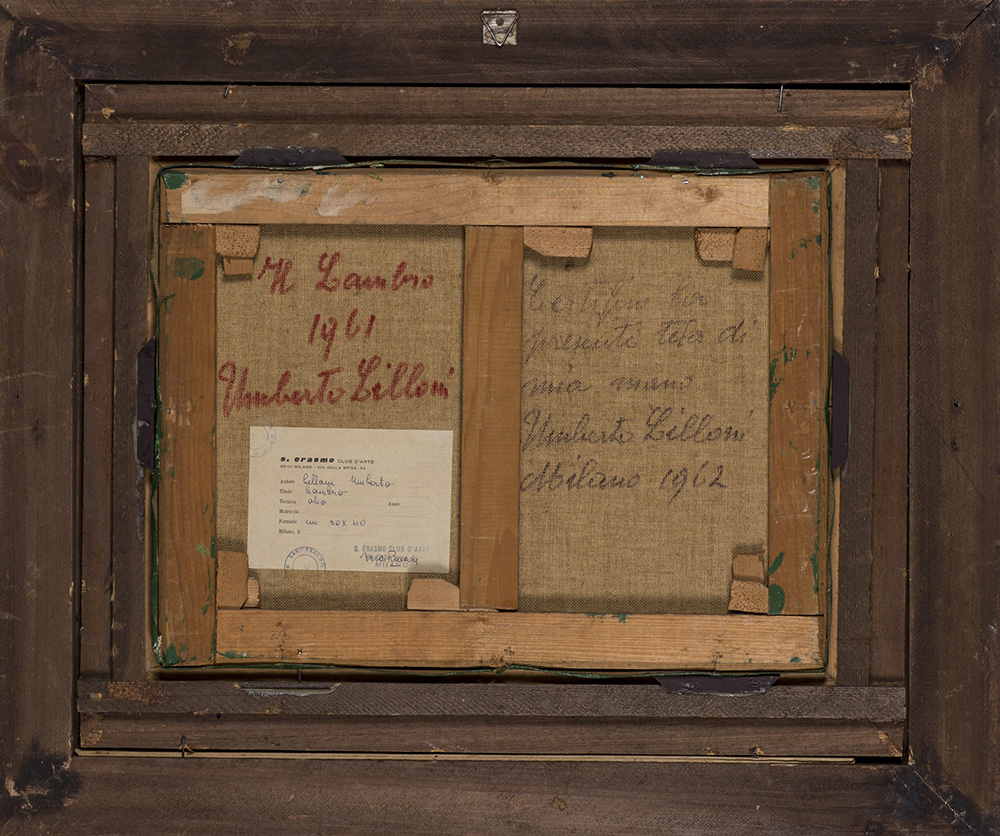 Il Lambro
1961
Umberto Lilloni
Certifico la
presente tela di
mia mano
Umberto Lilloni
Milano 1962
s. erasmo CLUB D'ARTE
20121 MILANO - VIA DELLA SPIGA, 33
Autore Lilloni Umberto
Titolo Lambro
Tecnica olio Anno
Matricola
Formato cm 30 x 40
Milano, li
S. ERASMO CLUB D'ARTE
MILANO